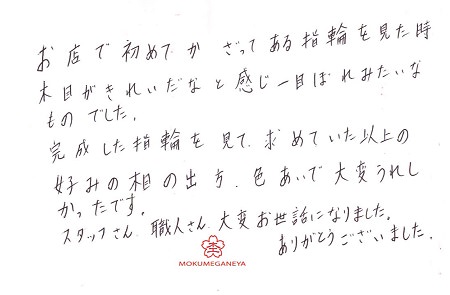 お店で初めてかざってある指輪を見た時
木目がきれいだなと感じ一目ぼれみたいな
ものでした。
完成した指輪を見て、求めていた以上の
好みの相の出方、色あいで大変うれし
かったです。
スタッフさん、職人さん、大変お世話になりました。
ありがとうございました。
MOKUMEGANEYA